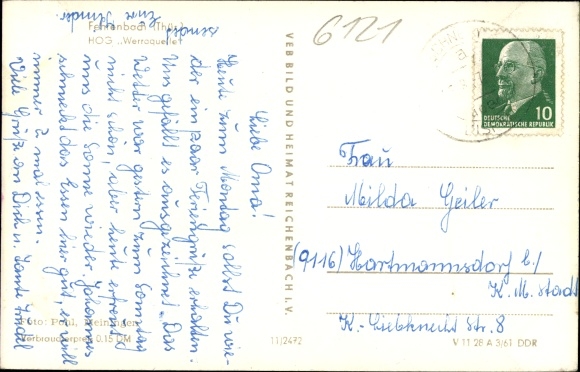 Fehrenbach (Thür.)
HOG „Werraquelle"
6121
Liebe Oma!
Heute zum Montag sollst Du wie-
der ein paar Feriengrüße erhalten.
Uns gefällt es ausgezeichnet. Das
Wetter war gestern zum Sonntag
nicht schön, aber heute erfreut
uns die Sonne wieder. Johannes
schmeckt das Essen hier gut, er will
immer 2 mal essen.
Viele Grüße an Dirk u. Tante
senden
Eure Kinder.
VEB BILD UND HEIMAT REICHENBACH I. V.
DEUTSCHE
DEMOKRATISCHE REPUBLIK
10
Frau
Milda Geiler
(9116) Hartmannsdorf b/
K. M. Stadt
K.-Liebknecht Str. 8
Foto: Pohl, Meiningen
Verbraucherpreis 0,15 DM
11/2472
V 11 28 A 3/61 DDR